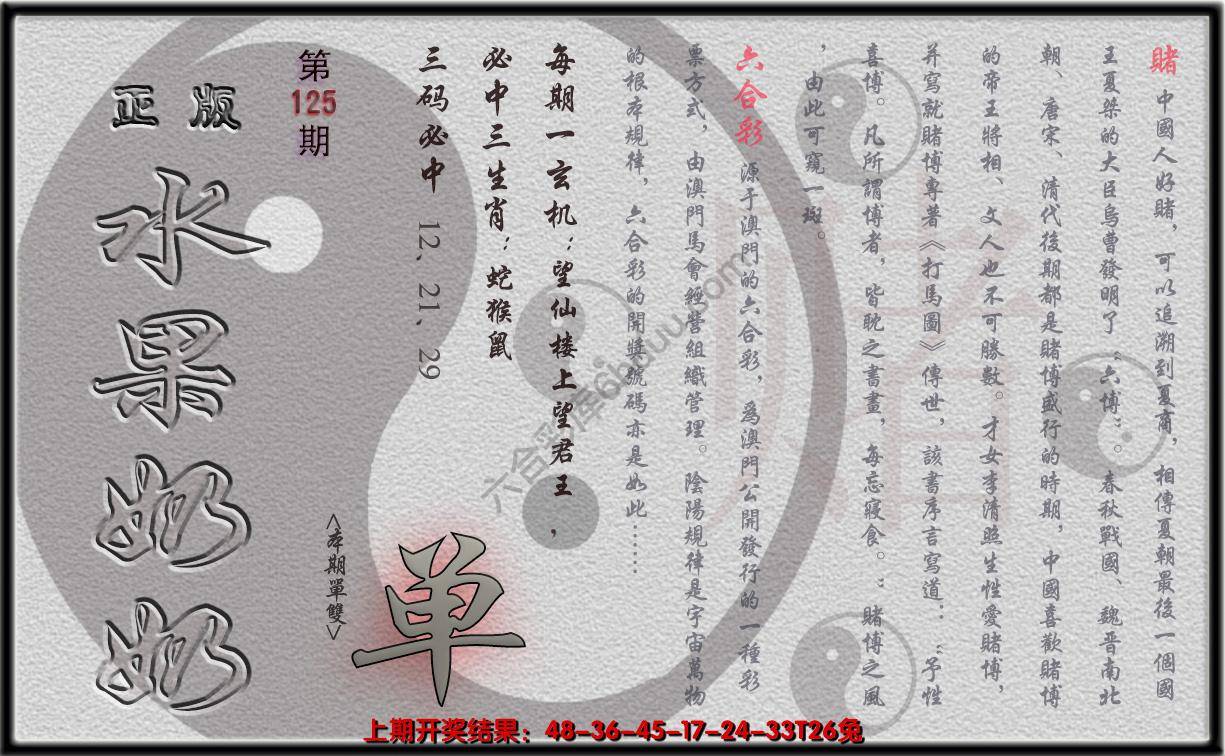 賭 中國人好賭，可以追溯到夏商，相傳夏朝最後一個國
王夏桀的大臣烏曹發明了“六博”。春秋戰國、魏晋南北
朝、唐宋、清代後期都是賭博盛行的時期，中國喜歡賭博
的帝王將相、文人也不可勝數。才女李清照生性愛賭博，
并寫就賭博專著《打馬圖》傳世，該書序言寫道：“予性
喜博。凡所謂博者，皆耽之書畫，每忘寢食。”賭博之風
，由此可窺一斑。
六合彩 源于澳門的六合彩，爲澳門公開發行的一種彩
票方式，由澳門馬會經營組織管理。陰陽規律是宇宙萬物
的根本規律，六合彩的開獎號碼亦是如此……
每期一玄机：望仙楼上望君王，
必中三生肖：蛇猴鼠
三码必中 12、21、29
第
125
期
<本期單雙>
单
正版
水果奶奶
賭
六合彩库6huuu.com
上期开奖结果：48-36-45-17-24-33T26兔